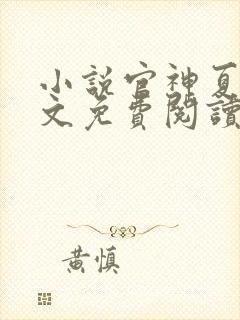 小說官神夏
文免費閱讀
黃慎